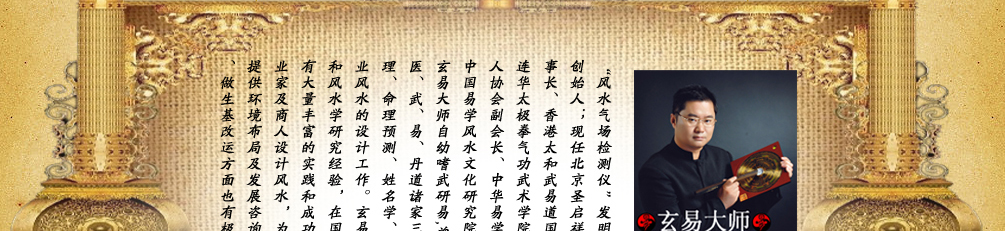 “风水气场检测仪”发明
创始人；现任北京圣启祥
事长、香港太和武易道国
连华太极泰气功武术学院
人协会副会长、中华易学
中国易学风水文化研究院
玄易大师自幼嗜武研易
医、武、易、丹道诸家三
理、命理预测、姓名学、
业风水的设计工作。玄易
和风水学研究经验，在国
有大量丰富的实践和成功
业家及商人设计风水，为
提供环境布局及发展咨询
、做生基改运方面也有极
玄易大师